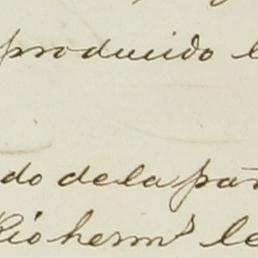 producido
do de la
Rio herm.s le